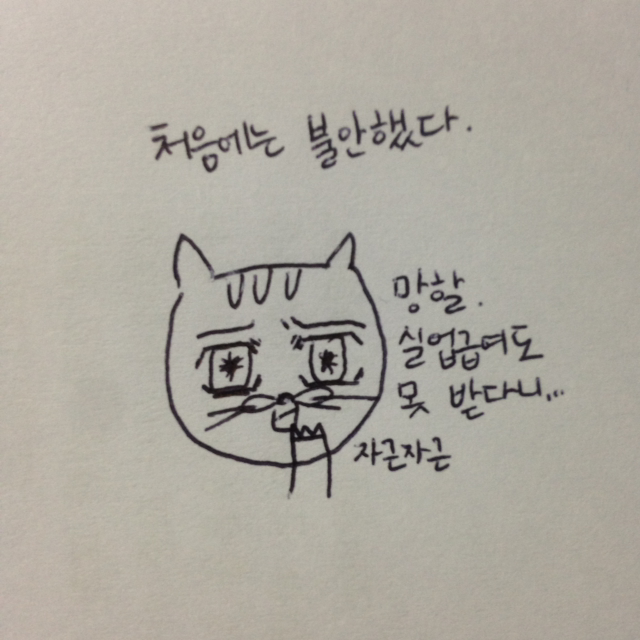 처음에는 불안했다.
망할.
실업급여도
못 받다니...
자근자근